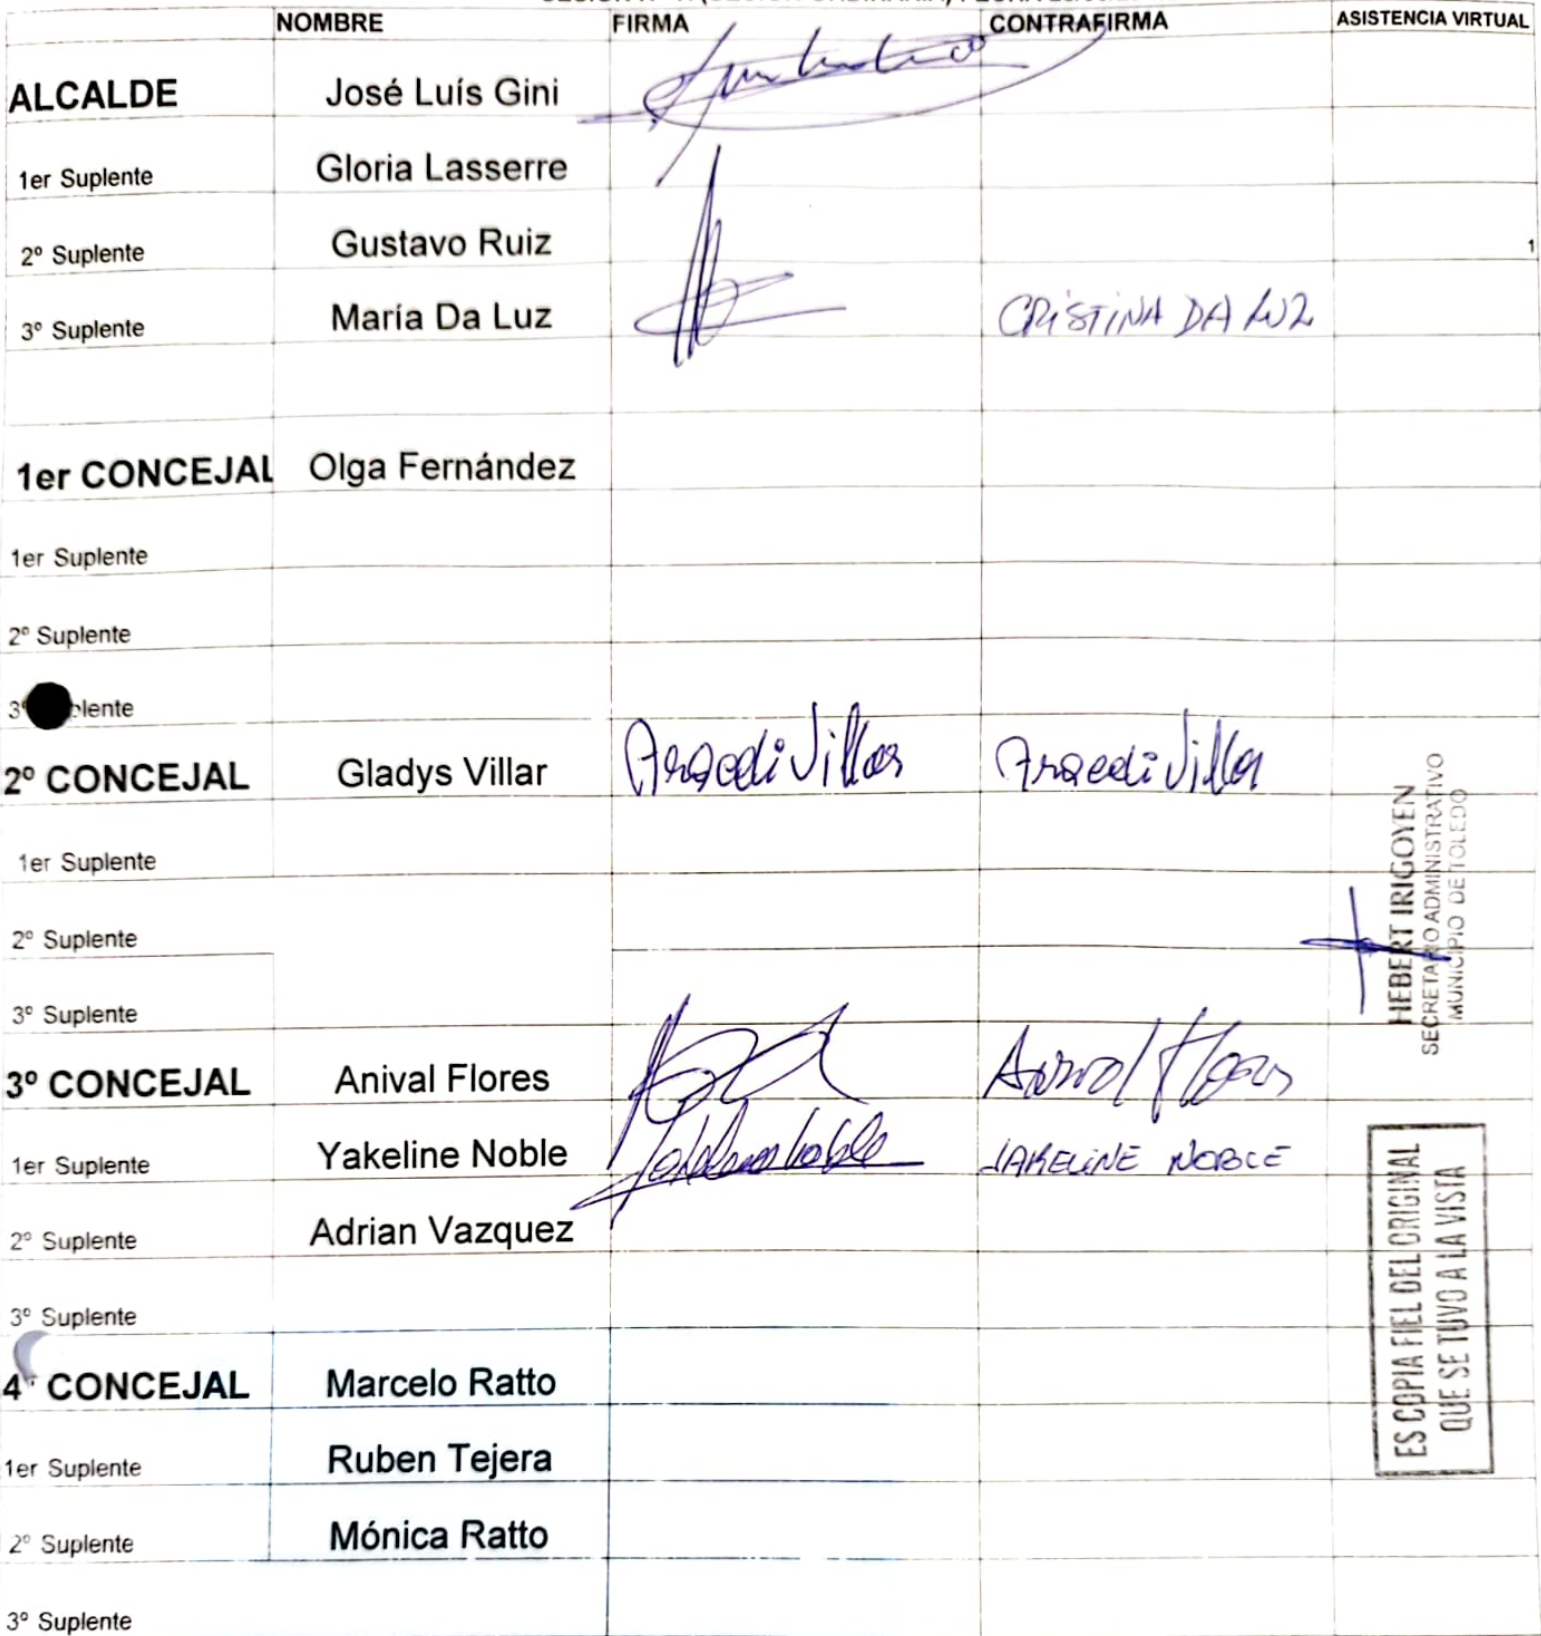 NOMBRE FIRMA CONTRAFIRMA ASISTENCIA VIRTUAL
ALCALDE José Luís Gini
1er Suplente Gloria Lasserre
2º Suplente Gustavo Ruiz 1
3º Suplente María Da Luz CRISTINA DA LUZ
1er CONCEJAL Olga Fernández
1er Suplente
2º Suplente
3º plente
2º CONCEJAL Gladys Villar Aracedi Villar Aracedi Villar
1er Suplente
2º Suplente
3º Suplente
3º CONCEJAL Anival Flores Anival Flores
1er Suplente Yakeline Noble JAKELINE NOBLE
2º Suplente Adrian Vazquez
3º Suplente
4º CONCEJAL Marcelo Ratto
1er Suplente Ruben Tejera
2º Suplente Mónica Ratto
3º Suplente
HEBERT IRIGOYEN
SECRETARIO ADMINISTRATIVO
MUNICIPIO DE TOLEDO
ES COPIA FIEL DEL ORIGINAL
QUE SE TUVO A LA VISTA